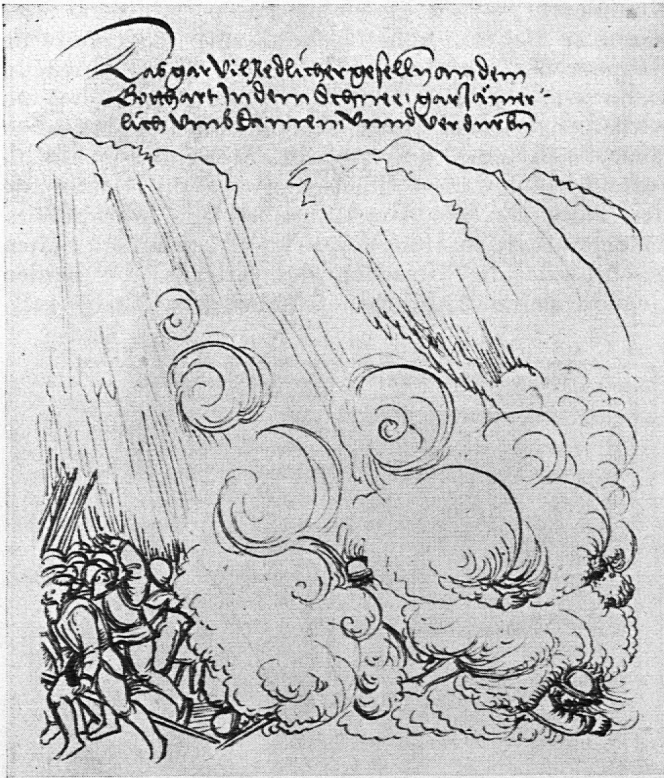 Das gar vil Redlicher geselln an dem
Gotthart In dem Schnee, gar Jämer-
lich vmb kamenn vnnd verdurbn